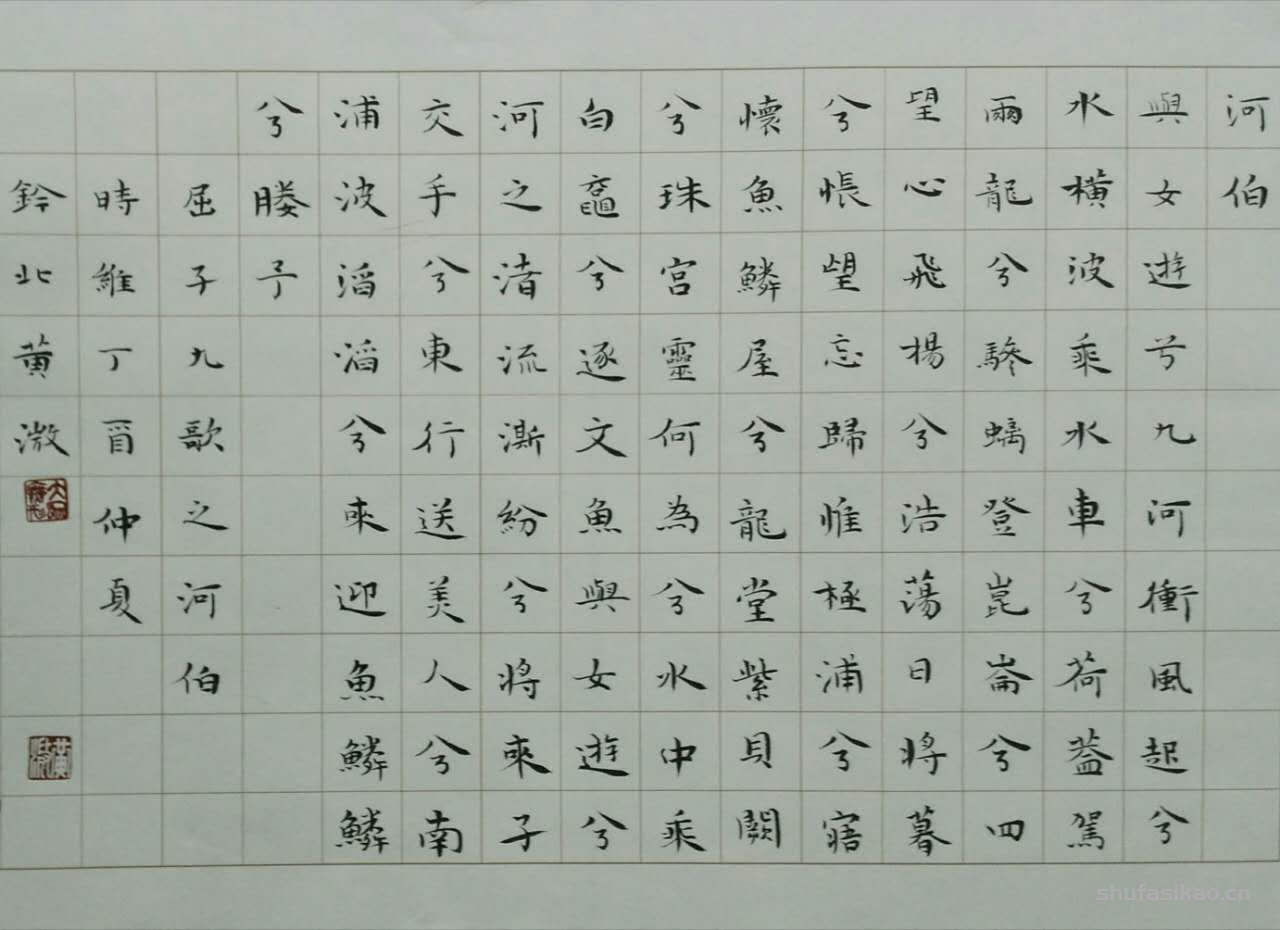 河伯
與女遊兮九河衝風起兮
水橫波乘水車兮荷蓋駕
兩龍兮驂螭登崑崙兮四
望心飛揚兮浩蕩日將暮
兮悵望忘歸惟極浦兮寤
懷魚鱗屋兮龍堂紫貝闕
兮珠宮靈何為兮水中乘
白黿兮逐文魚與女遊兮
河之渚流澌紛兮將來子
交手兮東行送美人兮南
浦波滔滔兮來迎魚鱗鱗
兮媵予
屈子九歌之河伯
時維丁酉仲夏
鈐北黃溦
shufasikao.cn